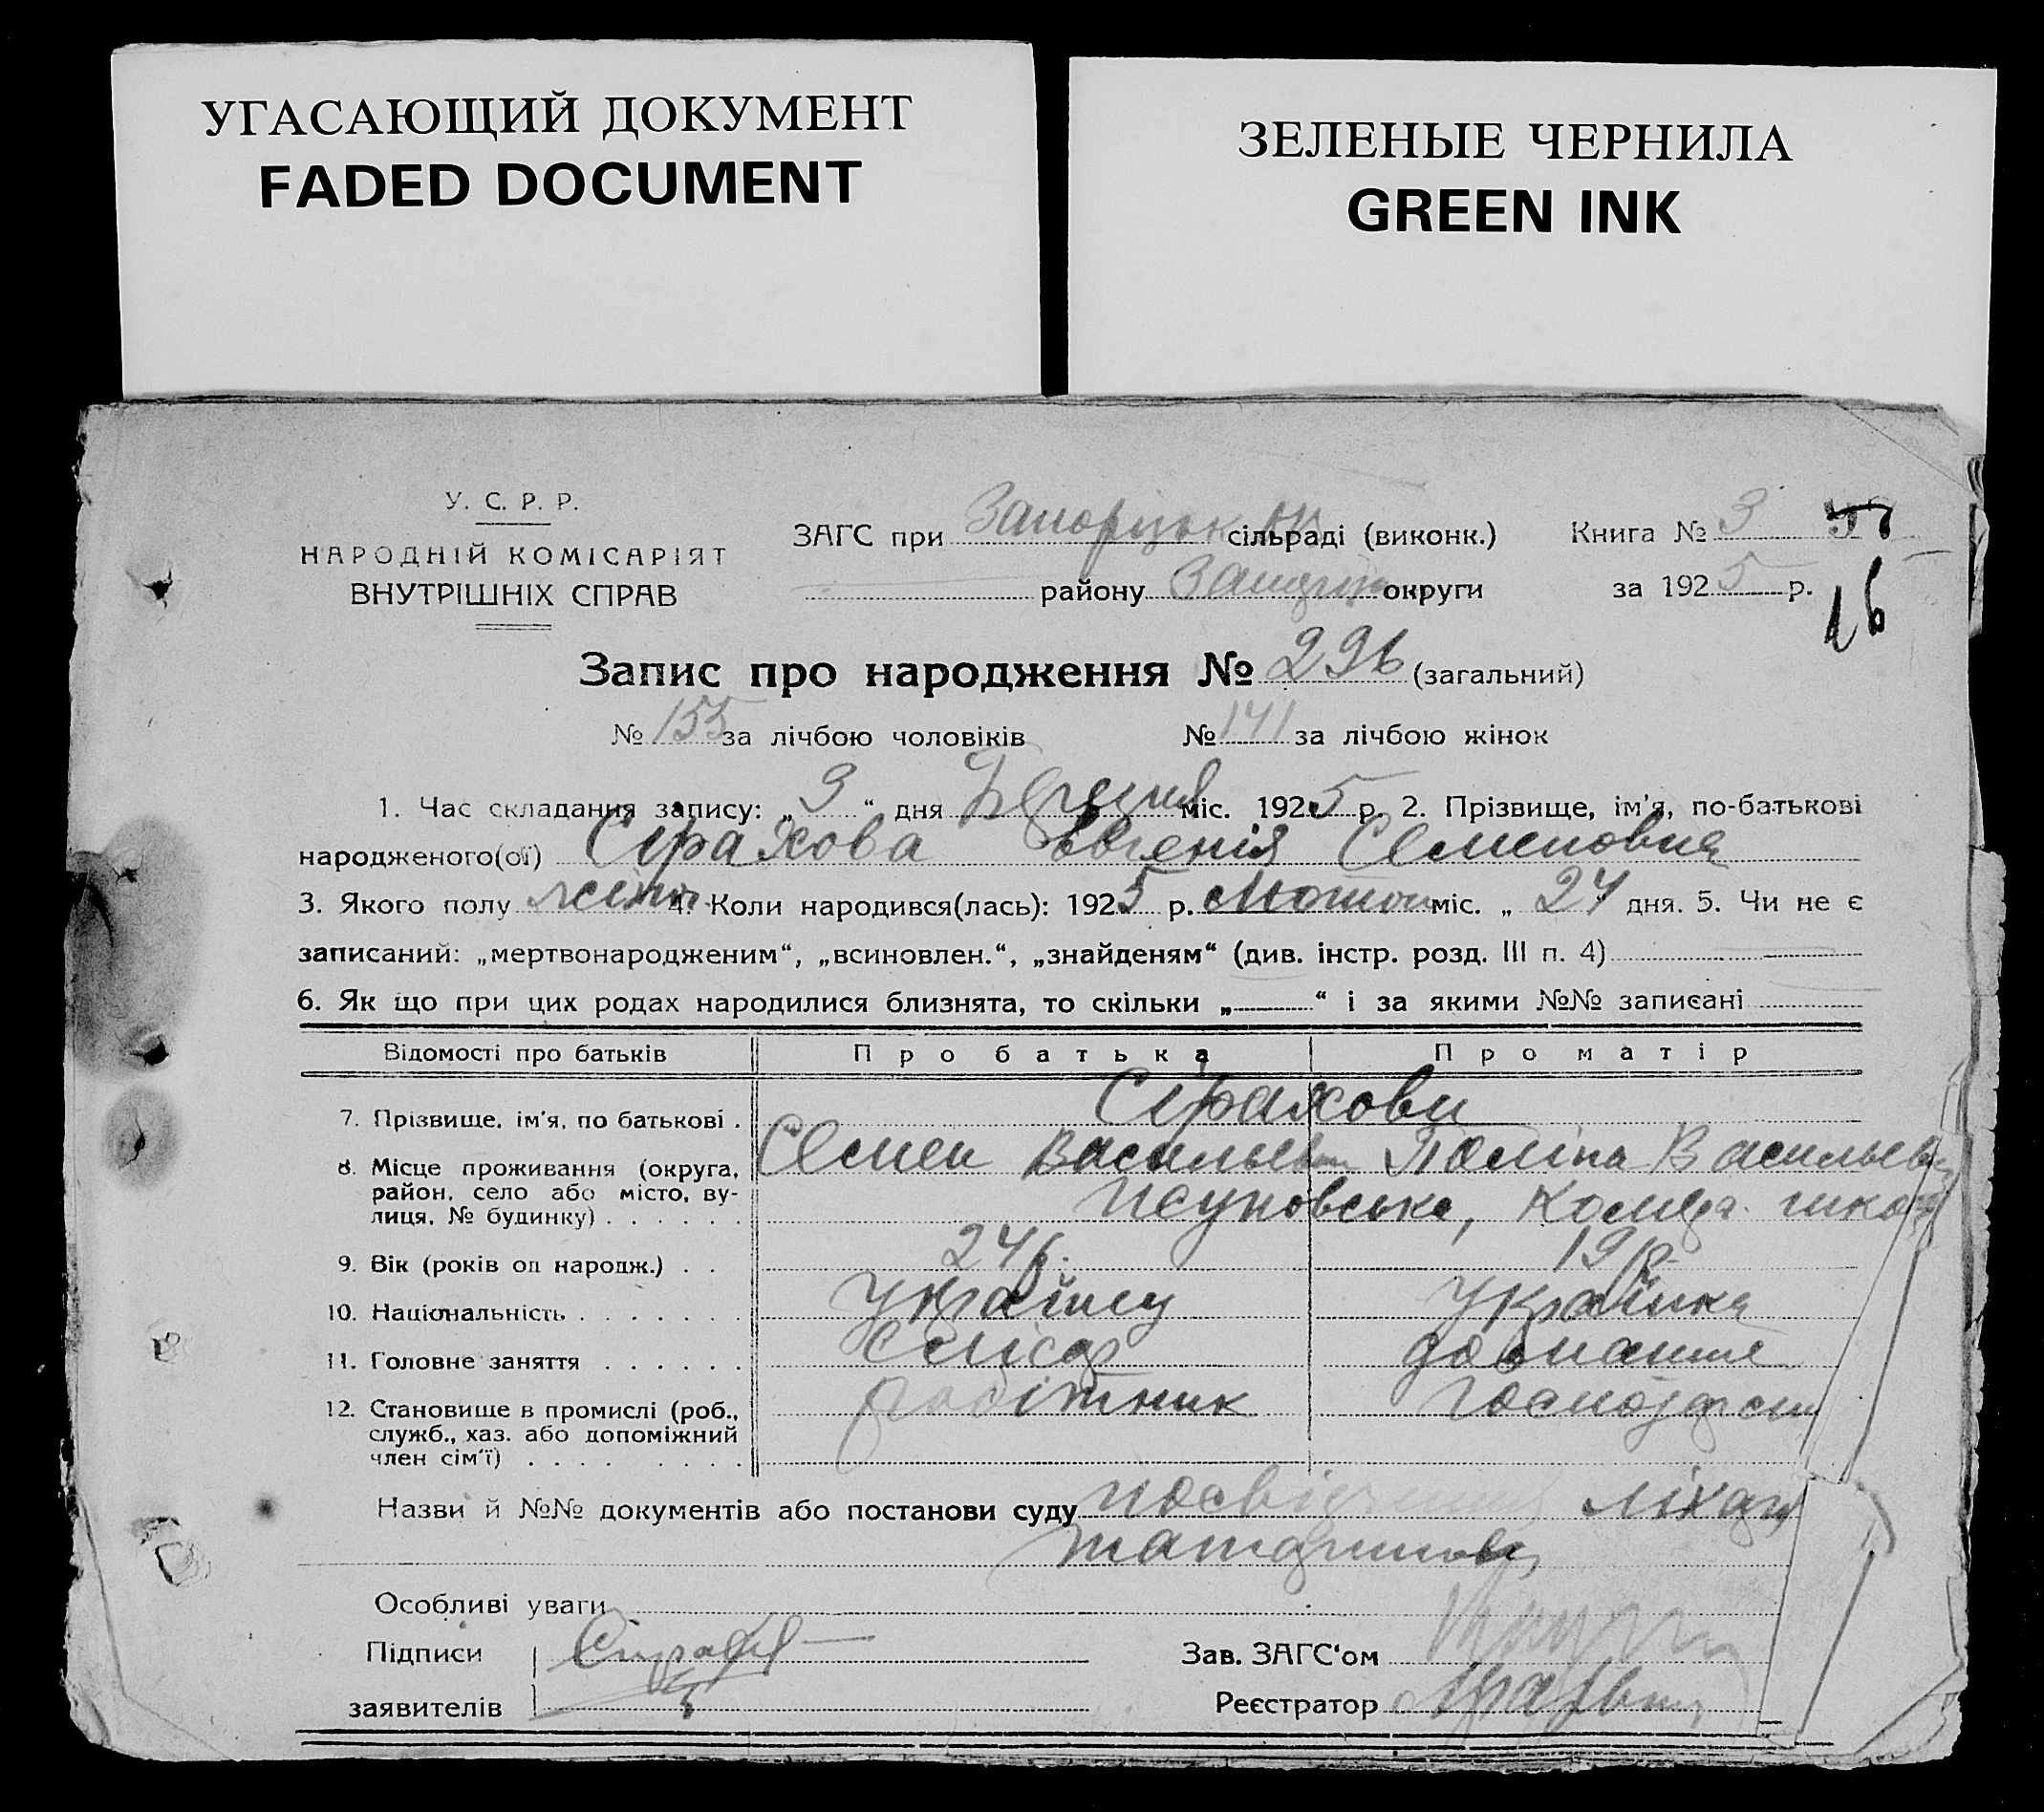 УГАСАЮЩИЙ ДОКУМЕНТ
FADED DOCUMENT
ЗЕЛЕНЫЕ ЧЕРНИЛА
GREEN INK
У. С. Р. Р.
НАРОДНІЙ КОМІСАРІЯТ
ВНУТРІШНІХ СПРАВ
ЗАГС при сільраді (виконк.)
району округи
Книга № 3
за 1925 р.
16
Запис про народження № 296 (загальний)
№ 155 за лічбою чоловіків № 141 за лічбою жінок
1. Час складання запису: „3“ дня Березня міс. 1925 р. 2. Прізвище, ім'я, по-батькові
народженого(ої) Страхова Євгенія Семеновна
3. Якого полу жіноч. 4. Коли народився(лась): 1925 р. Лютого міс. „ 24 дня. 5. Чи не є
записаний: „мертвонародженим“, „всиновлен.“, „знайденям“ (див. інстр. розд. III п. 4)
6. Як що при цих родах народилися близнята, то скільки „—“ і за якими №№ записані
Відомості про батьків Про батька Про матір
7. Прізвище, ім'я, по батькові . Страхови
Семен Васильев Поліна Васильев
8. Місце проживання (округа,
район, село або місто, ву-
лиця, № будинку) . . . . . .
9. Вік (років од народж.) . . 24 р. 19 р.
10. Національність . . . . . . . Українец Українка
11. Головне заняття . . . . . . слюсар домашнє
12. Становище в промислі (роб.,
служб., хаз. або допоміжний
член сім'ї) . . . . . . . . робітник господарст
Назви й №№ документів або постанови суду посвідчення лікаря
Особливі уваги
Підписи
заявителів
Зав. ЗАГС'ом
Реєстратор